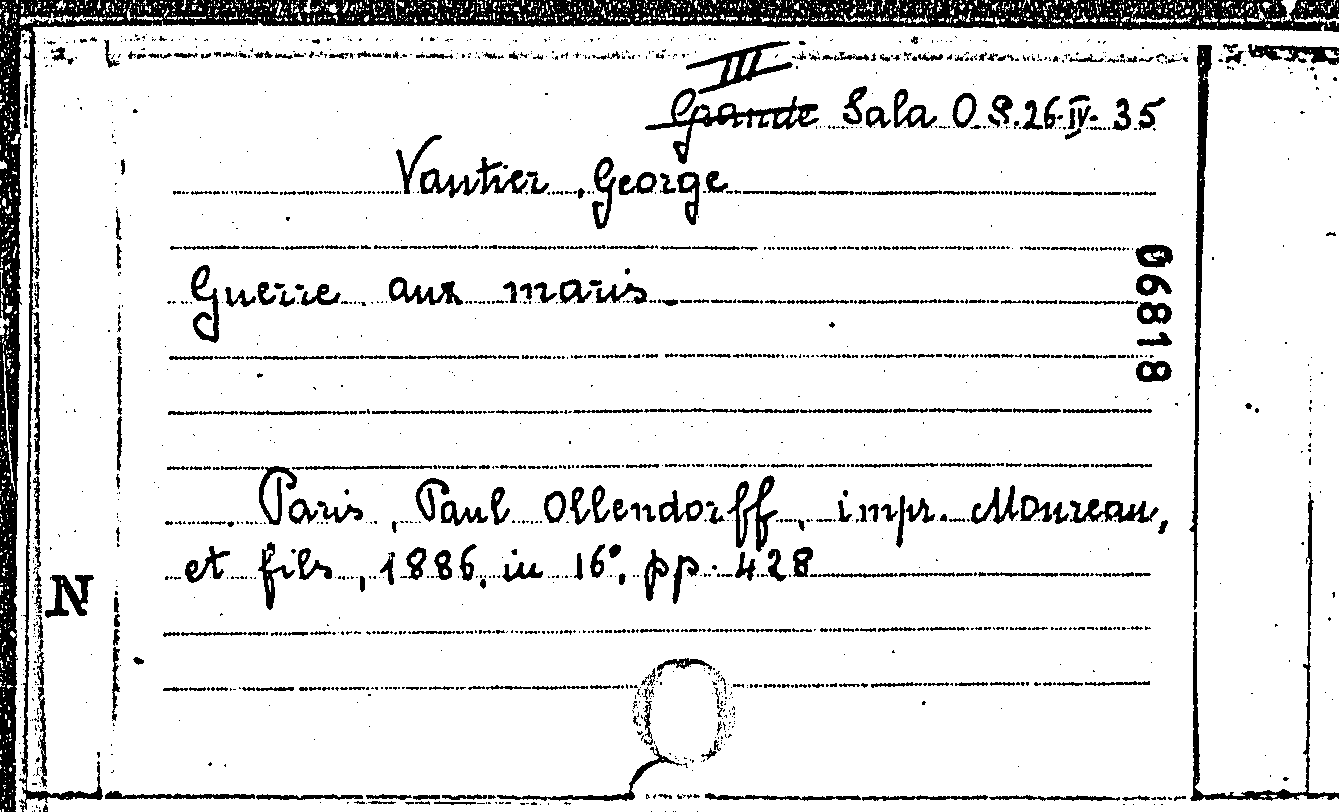 III
Grande Sala O.S. 26-IV-35
Vautier, George
Guerre aux maris.
06818
Paris, Paul Ollendorff, impr. Moureau,
et fils, 1886, in 16°, pp. 428
N